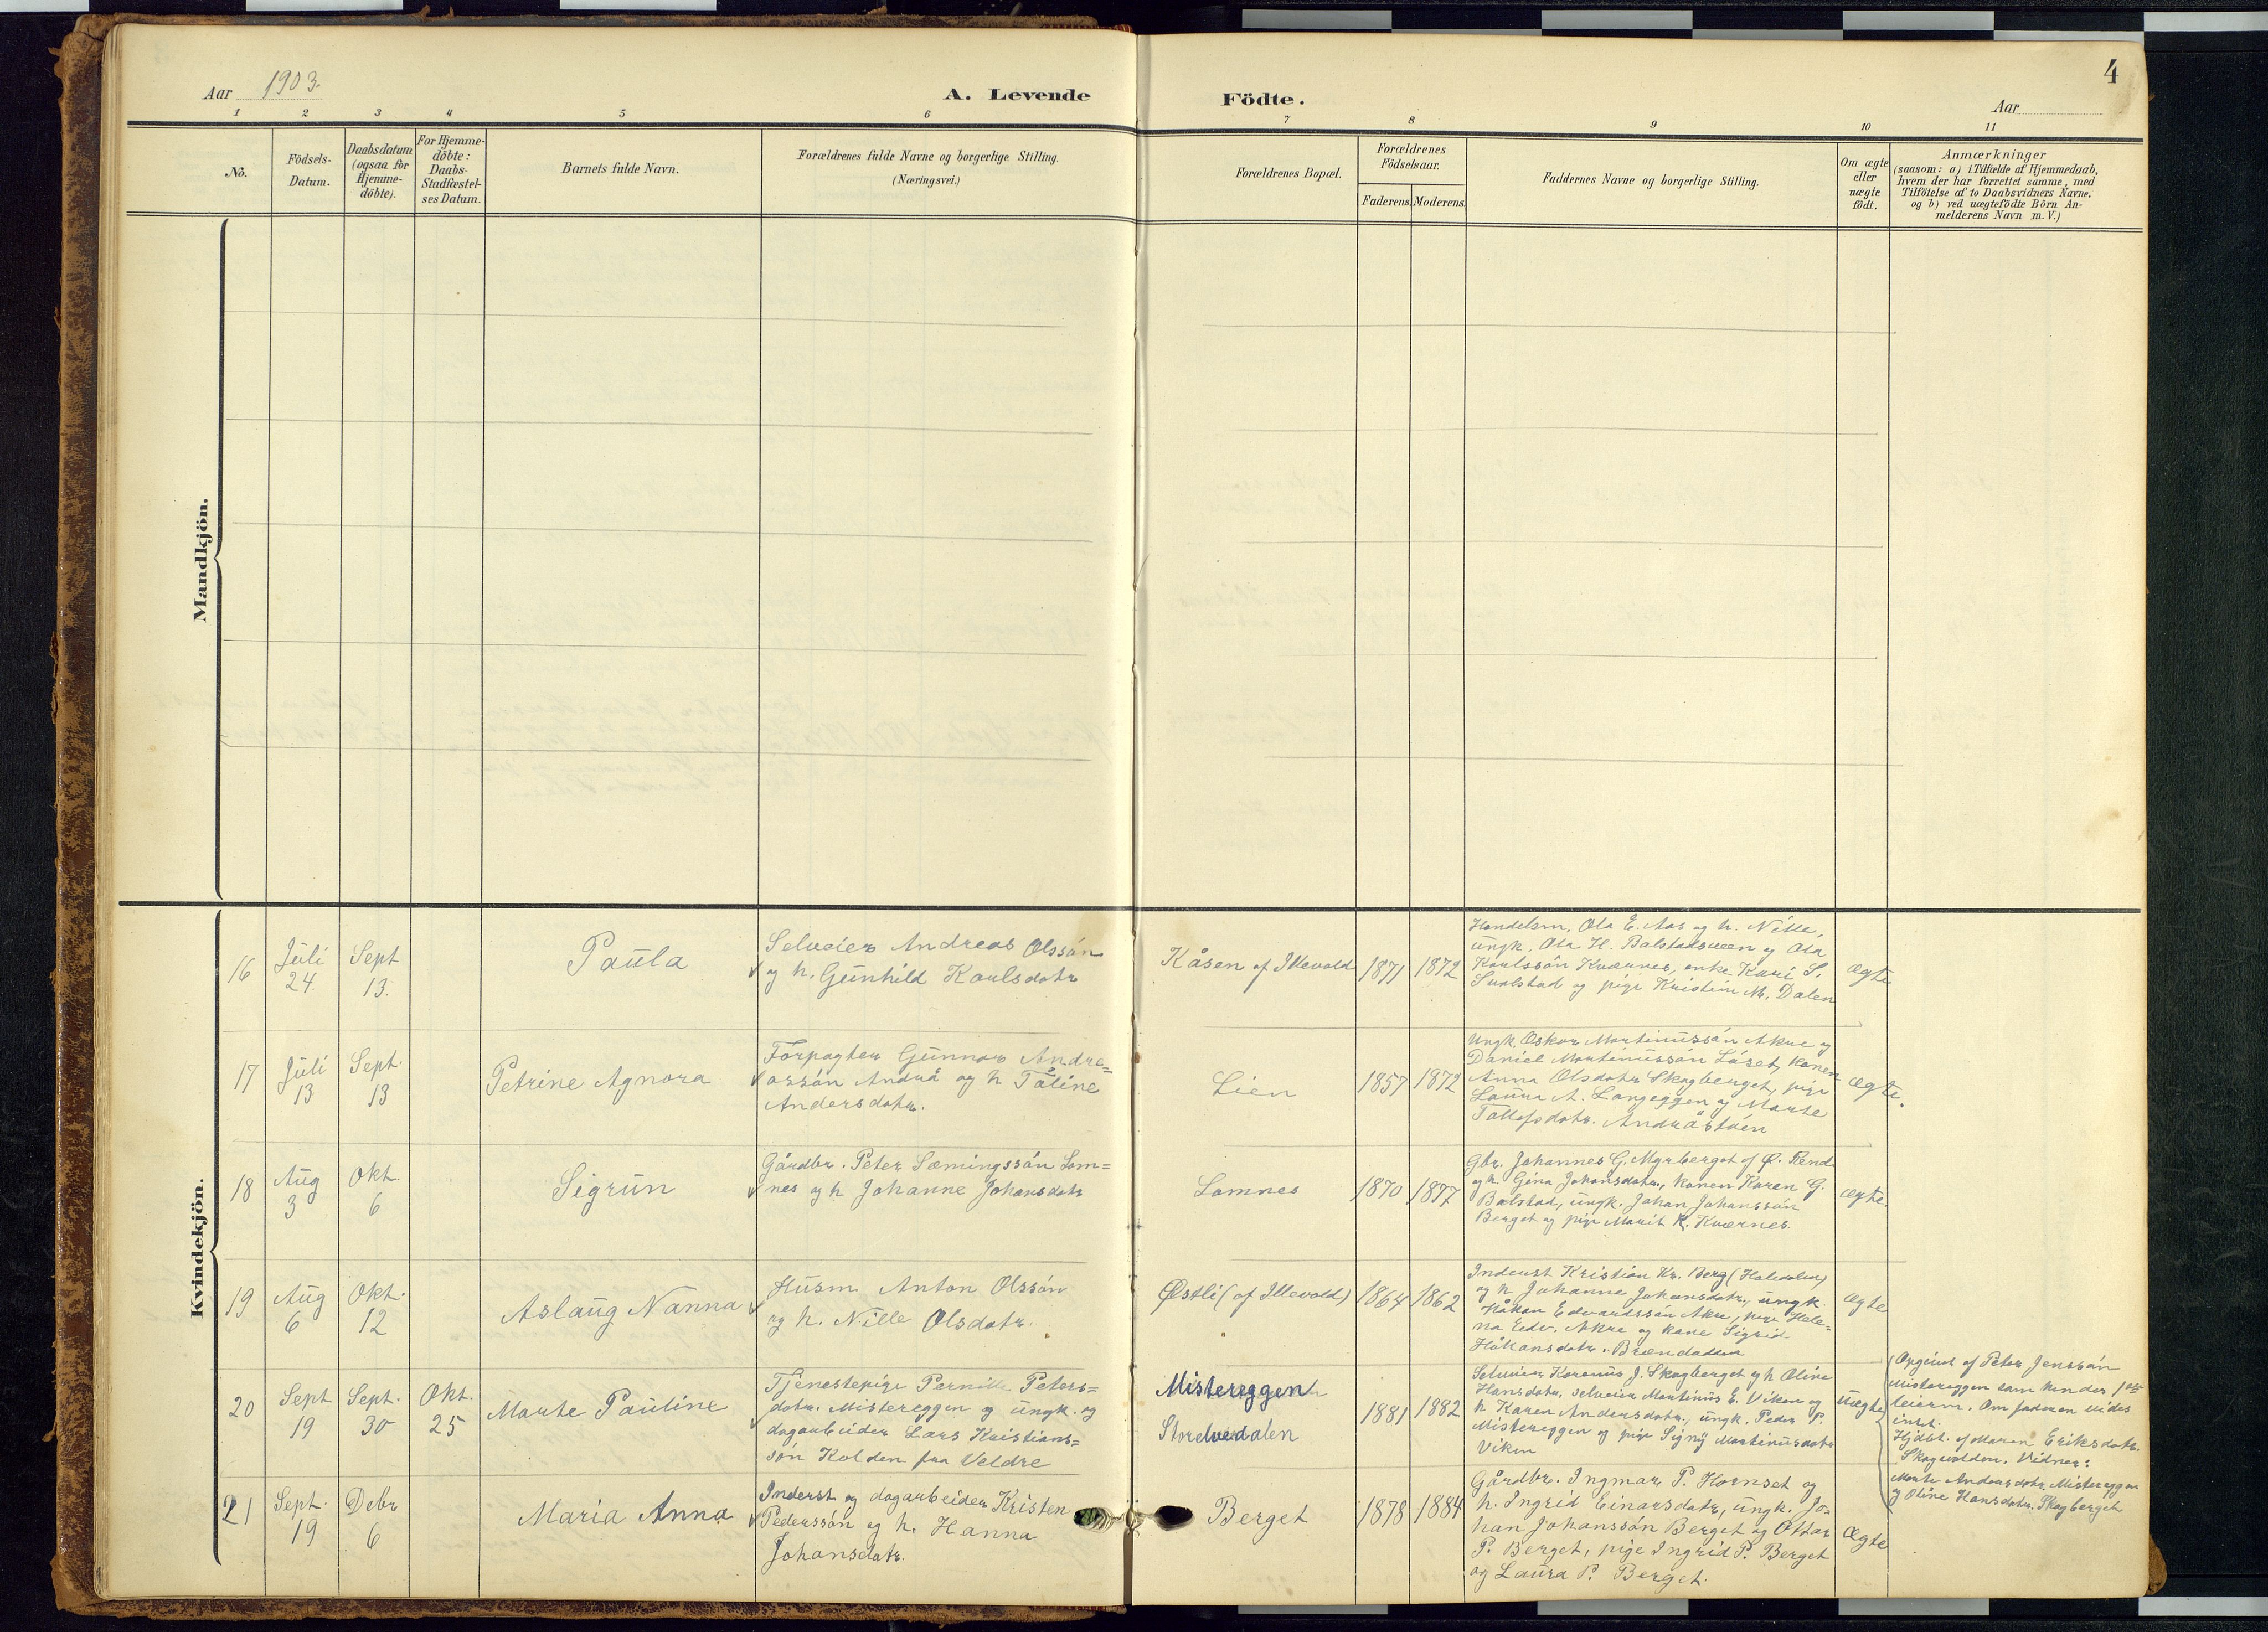 4
Aar 1903.
A. Levende
Födte.
Aar
1 2 3 4 5 6 7 8 9 10 11
No.
Födsels-
Datum.
Daabsdatum
(ogsaa for
Hjemme-
döbte).
For Hjemme-
döbte:
Daabs-
Stadfæstel-
ses Datum.
Barnets fulde Navn.
Forældrenes fulde Navne og borgerlige Stilling.
(Næringsvei.)
Forældrenes Bopæl.
Forældrenes
Födselsaar.
Faderens. Moderens.
Faddernes Navne og borgerlige Stilling.
Om ægte
eller
uægte
födt.
Anmærkninger
(saasom: a) i Tilfælde af Hjemmedaab,
hvem der har forrettet samme, med
Tilföielse af to Daabsvidners Navne.
og b) ved uægtefödte Börn An-
melderens Navn m.V.)
Mandkjön.
Kvindekjön.
16
Juli
24.
Sept
13.
Paula
Selveier Andreas Olssön
og h. Gunhild Karlsdatr
Kåsen af Illevold
1871
1872
Handelsm. Ola E. Aas og h. Nille,
ungk. Ola H. Balstadsveen og Ola
Karlssön Kværnes, enke Kari S.
og pige Kristine M. Dalen
ægte
17
Juli
13
Sept.
13
Petrine Agnora
Forpagter Gunnar Andre=
assön Andrå og h Tåline
Andersdatr.
Lien
1857
1872
Ungk. Oskar Martinussön Akre og
Daniel Martinussön Löset, konen
Anna Olsdatr Skogberget, pige
Laura A. Langeggen og Marte
Tollefsdatr. Andråstöen
ægte.
18
Aug
3
Okt.
6
Sigrun
Gårdbr. Peter Sæmingssön Lom=
nes og h Johanne Johansdatr
Lomnes
1870
1877
Gbr. Johannes G. Myrberget af Ø. Rend.
og h. Gina Johansdatr., konen Karen G.
Balstad, ungk. Johan Johanssön
Berget og pige Marit K. Kværnes.
ægte.
19
Aug
6
Okt.
12
Aslaug Nanna
Husm Anton Olssön
og h. Nille Olsdatr.
Østli (af Illevold)
1864
1862
Inderst Kristian Kr. Berg
og h Johanne Johansdatr., ungk.
Håkon Edvardssön Akre, pige Hele=
na Edv. Akre og kone Sigrid
Håkansdatr.
ægte
20
Sept
19
Sept.
30
Okt.
25
Marte Pauline
Tjenestepige Pernille Peters=
datr. Mistereggen og ungk. og
dagarbeider Lars Kristians=
sön Kolden fra Veldre
Mistereggen
Storelvedalen
1881
1882
Selveier Korenus J. Skogberget og h Oline
Hansdatr. selveier Martinus E. Viken og
h Karen Andersdatr., ungk. Peder P.
Mistereggen og pige Signy Martinusdatr
Viken
uægte
Opgivet af Peter Jenssön
Mistereggen som kendes
Om faderen vides
intet.
Hjdbt. af Maren Eriksdatr.
Skogvolden. Vidner:
Marte Andersdatr Mistereggen
og Oline Hansdatr. Skogberget
21
Sept.
19
Debr
6
Maria Anna
Inderst og dagarbeider Kristen
Pederssön og h. Hanna
Johansdatr.
Berget
1878
1884
Gårdbr. Ingmar P. Hornset og
h. Ingrid Einarsdatr, ungk. Jo=
han Johanssön Berget og Ottar
P. Berget, pige Ingrid P. Berget
og Laura P. Berget.
Ægte